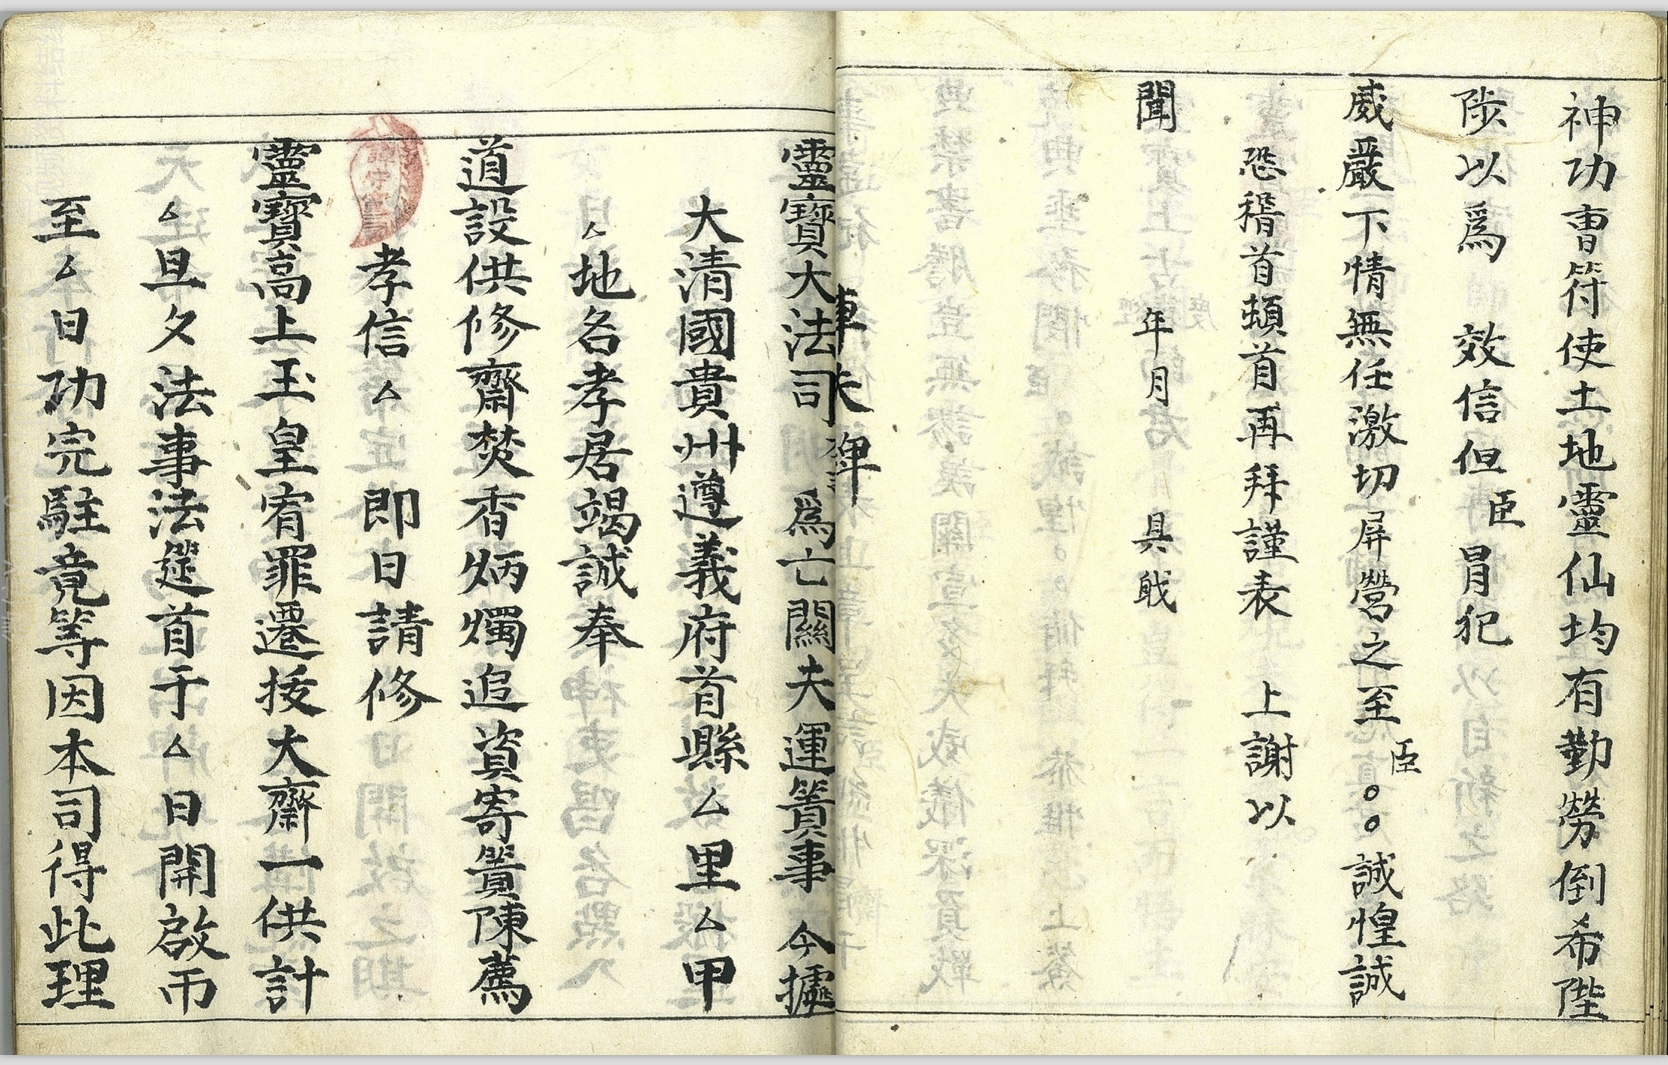 神功曺符使土地靈仙均有勤勞倒希陛
陟以爲 效信但臣冐犯
威嚴下情無任激切屏營之至 臣。。誠惶誠
恐稽首頓首再拜謹表 上謝以
聞 年 月 具 戝
靈寶大法司 爲亡關夫運簣事 今攄
大清國貴州遵義府首縣厶里厶甲
厶地名孝居竭誠奉
道設供修齋焚香炳燭追資寄簣陳薦
孝信厶 即日請修
靈寶高上玉皇宥罪遷拔大齋一供計
厶旦夕法事法筵首于厶日開啟而
至厶日功完駐竟等因本司得此理